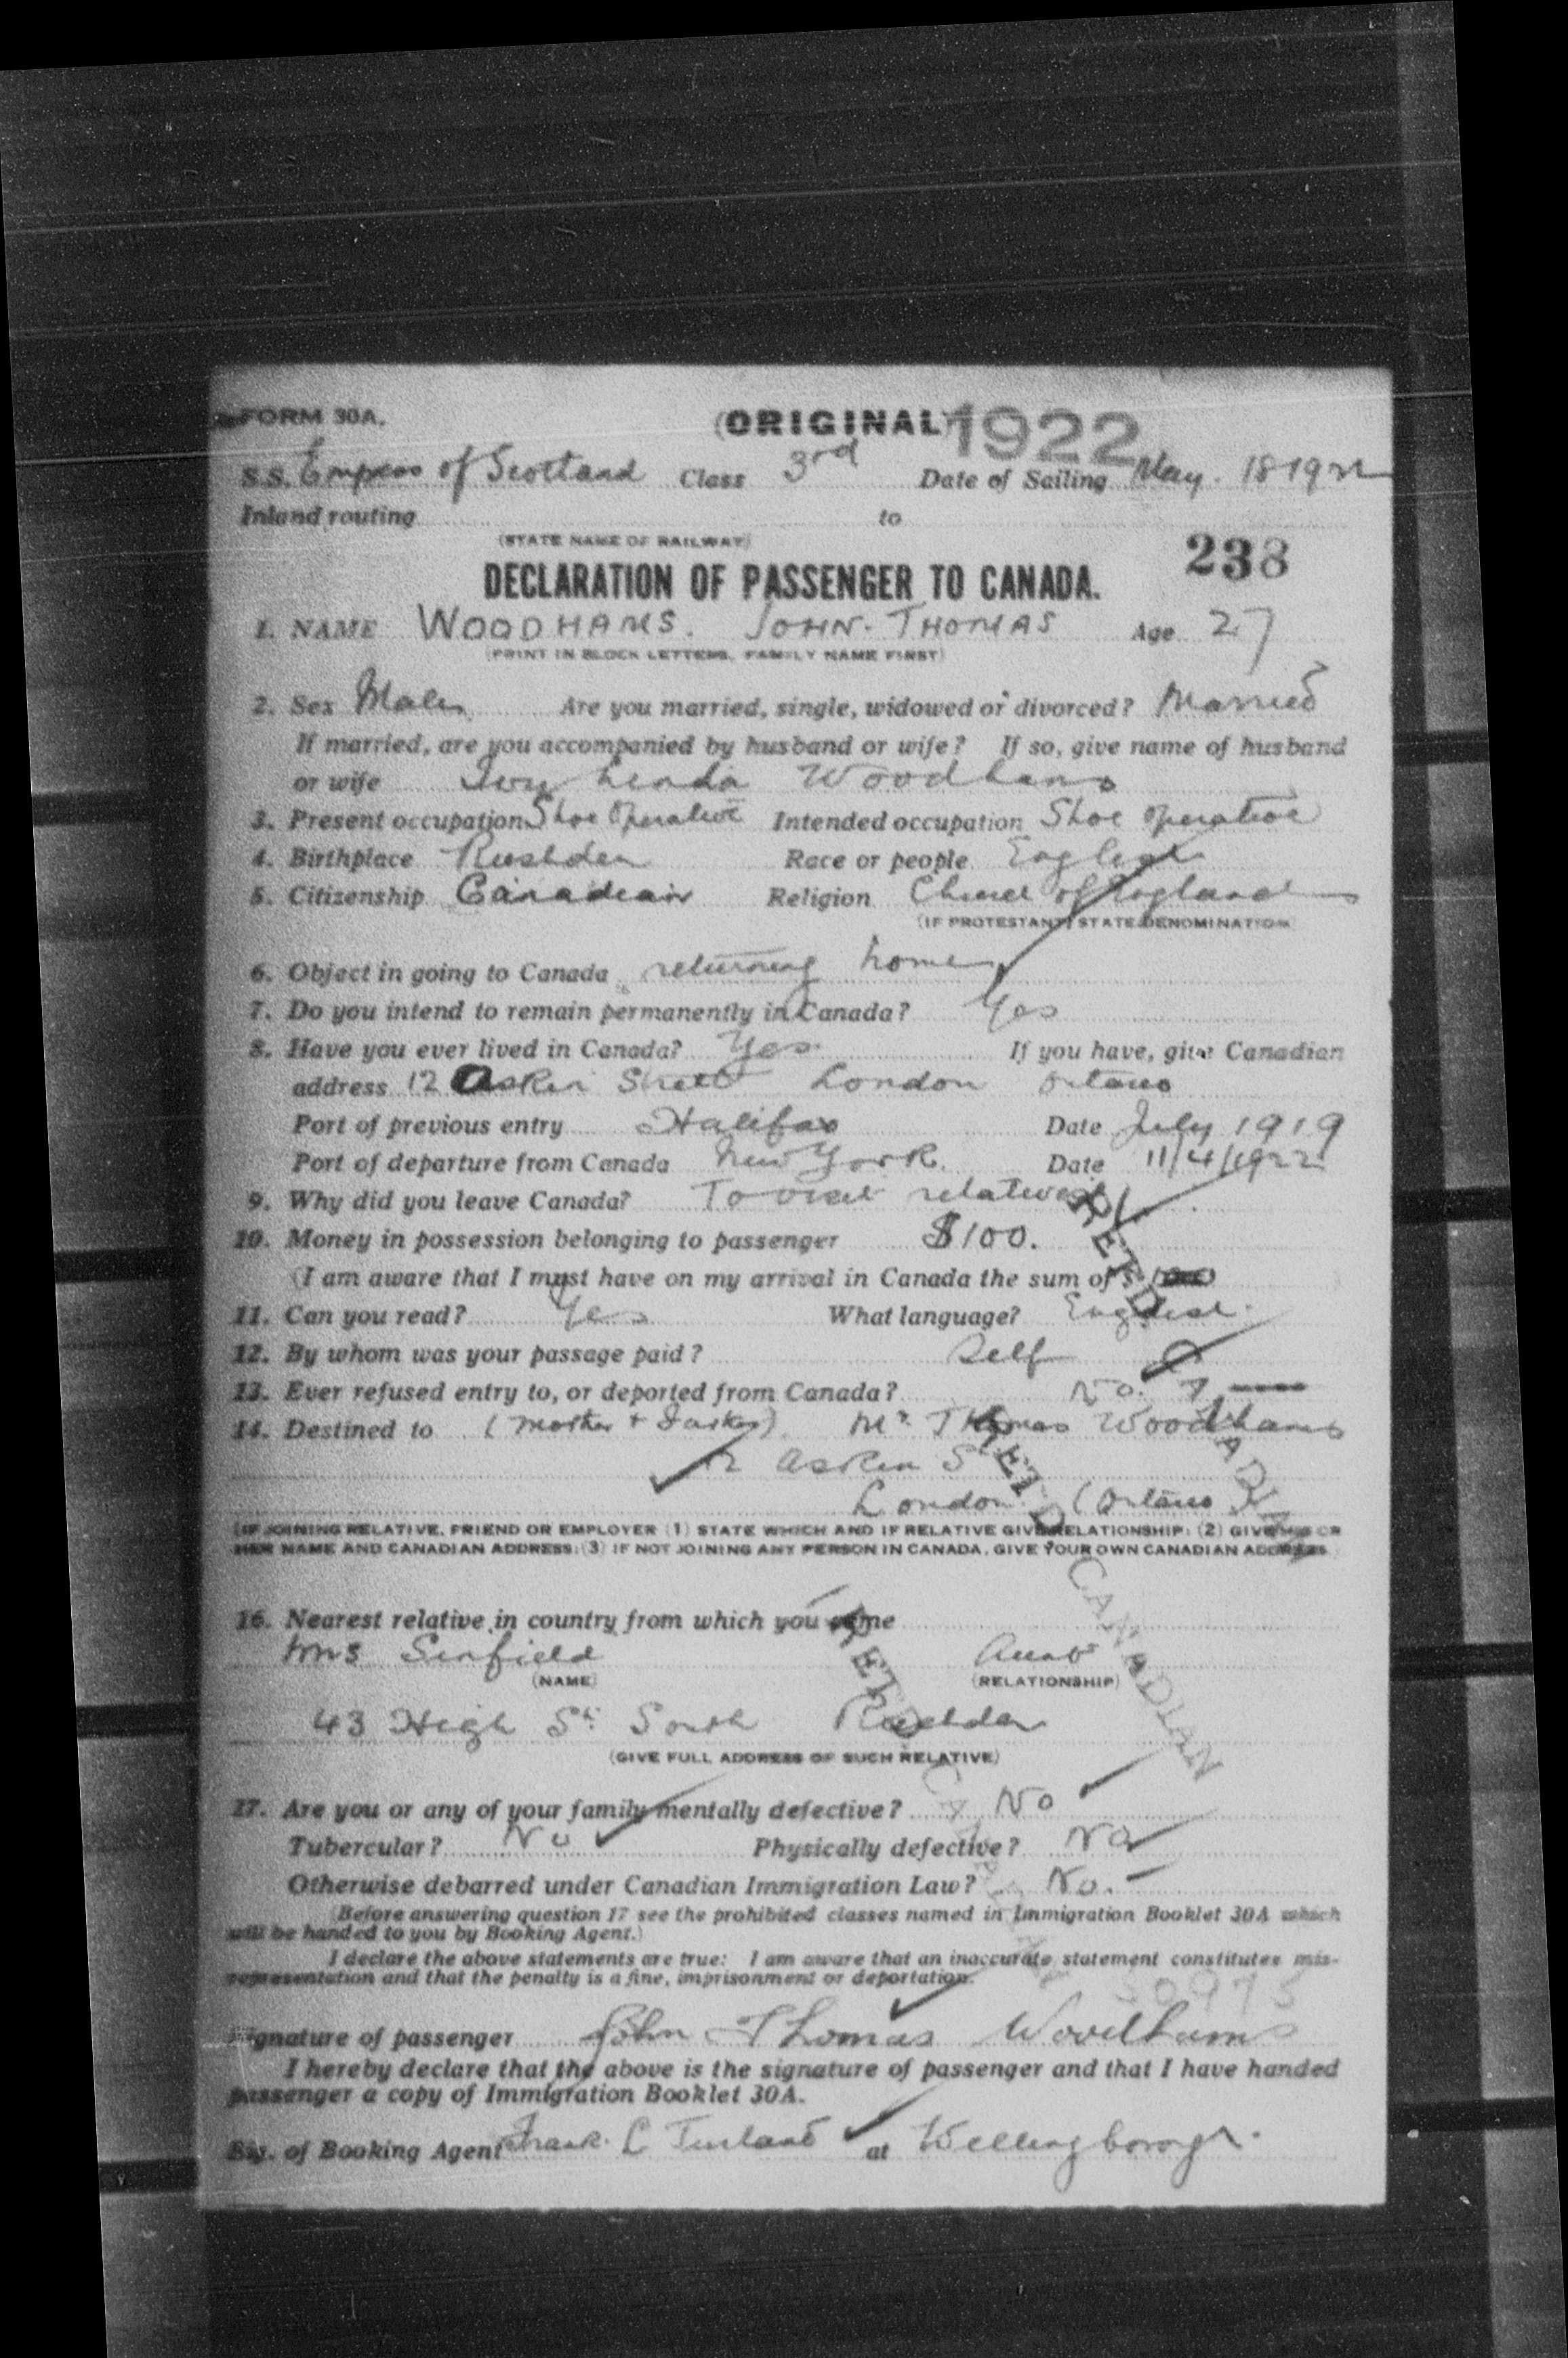 FORM 30A.
(ORIGINAL) 1922
S.S. Empress of Scotland Class 3rd Date of Sailing May. 18 1922
Inland routing to
(STATE NAME OF RAILWAY)
238
DECLARATION OF PASSENGER TO CANADA.
1. NAME WOODHAMS. JOHN. THOMAS Age 27
(PRINT IN BLOCK LETTERS, FAMILY NAME FIRST)
2. Sex Male Are you married, single, widowed or divorced? Married
If married, are you accompanied by husband or wife? If so, give name of husband
or wife Ivy Woodhams
3. Present occupation Shoe Operative Intended occupation Shoe operative
4. Birthplace Rushden Race or people English
5. Citizenship Canadian Religion Church of England
(IF PROTESTANT, STATE DENOMINATION)
6. Object in going to Canada returning home
7. Do you intend to remain permanently in Canada? Yes
8. Have you ever lived in Canada? Yes. If you have, give Canadian
address 12 Askin Street London Ontario
Port of previous entry Halifax Date July 1919
Port of departure from Canada New York. Date 11/4/1922
9. Why did you leave Canada? To visit relatives
10. Money in possession belonging to passenger $100.
(I am aware that I must have on my arrival in Canada the sum of $
11. Can you read? Yes What language? English.
12. By whom was your passage paid? Self
13. Ever refused entry to, or deported from Canada? No.
14. Destined to (Mother & Father) Mr Thomas Woodhams
12 Askin St
London. (Ontario)
(IF JOINING RELATIVE, FRIEND OR EMPLOYER (1) STATE WHICH AND IF RELATIVE GIVE RELATIONSHIP: (2) GIVE HIS OR
HER NAME AND CANADIAN ADDRESS: (3) IF NOT JOINING ANY PERSON IN CANADA, GIVE YOUR OWN CANADIAN ADDRESS
RET'D CANADIAN
RET'D CANADIAN
RET'D CANADIAN
16. Nearest relative in country from which you came
Mrs Sinfield Aunt
(NAME) (RELATIONSHIP)
43 High St. South Rushden
(GIVE FULL ADDRESS OF SUCH RELATIVE)
17. Are you or any of your family mentally defective? No
Tubercular? No Physically defective? No
Otherwise debarred under Canadian Immigration Law? No.
(Before answering question 17 see the prohibited classes named in Immigration Booklet 30A which
will be handed to you by Booking Agent.)
I declare the above statements are true: I am aware that an inaccurate statement constitutes mis-
representation and that the penalty is a fine, imprisonment or deportation.
Signature of passenger John Thomas Woodhams
I hereby declare that the above is the signature of passenger and that I have handed
passenger a copy of Immigration Booklet 30A.
Sig. of Booking Agent Frank. C Turland at Wellingborough.